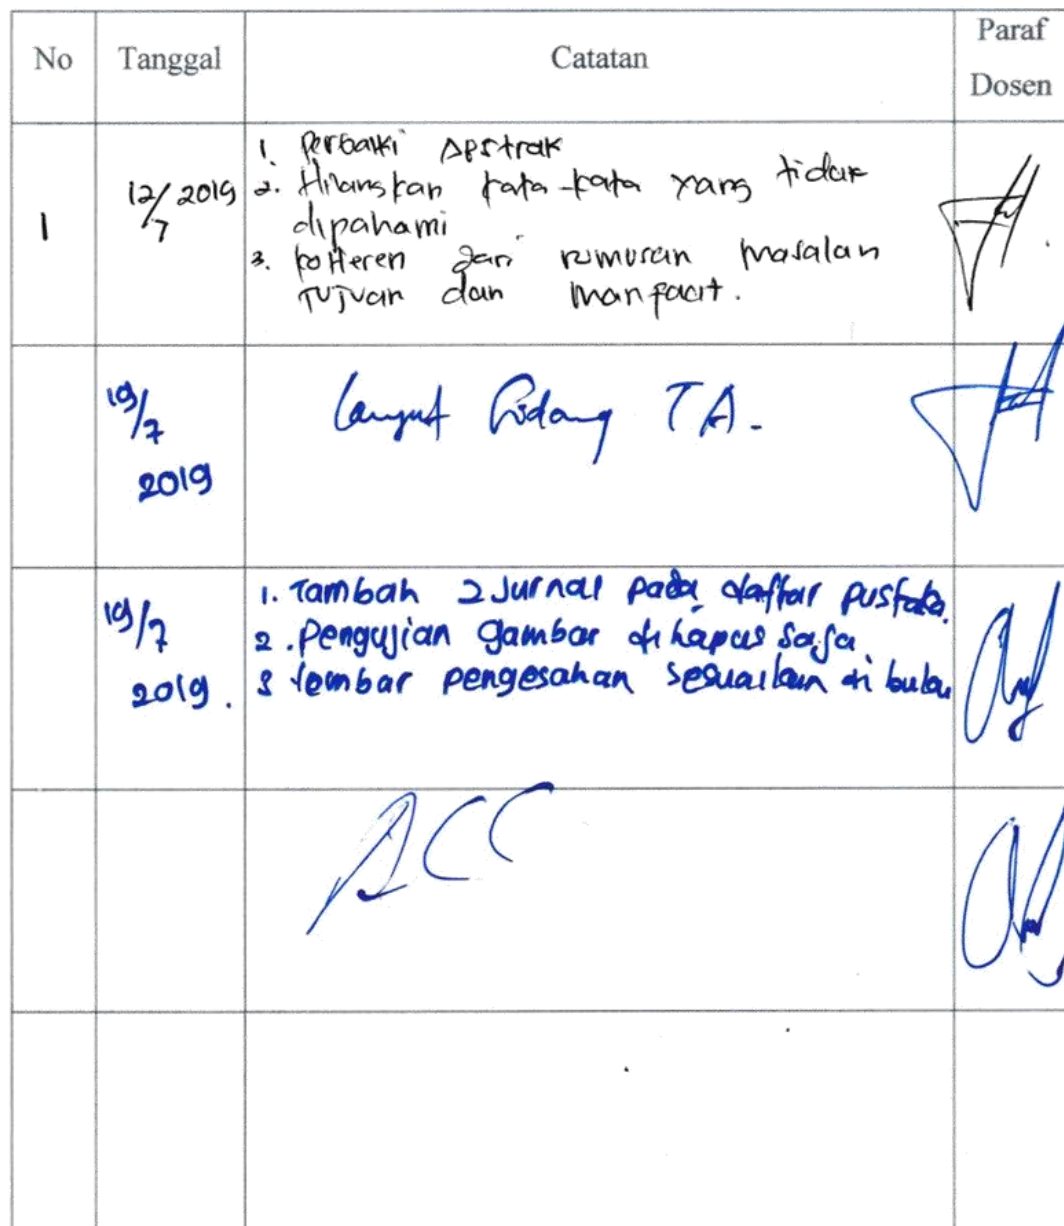 No Tanggal Catatan Paraf
Dosen
1 12/7 2019 1. Perbaiki Apstrak
2. Hilangkan kata-kata yang tidak
dipahami
3. koHeren dari rumusan masalah
Tujuan dan manfaat.
19/7 Lanjut Sidang TA.
2019
19/7 1. Tambah 2 Jurnal pada daftar pustaka.
2. Pengujian gambar di hapus saja
2019. 3 lembar pengesahan sesuaikan di buku
ACC